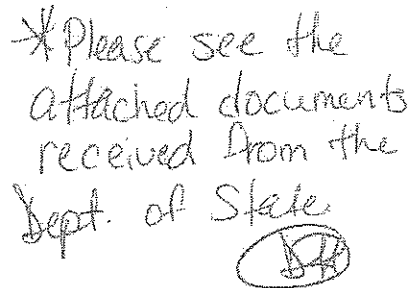 *Please see the
attached documents
received from the
Dept. of State.
DH